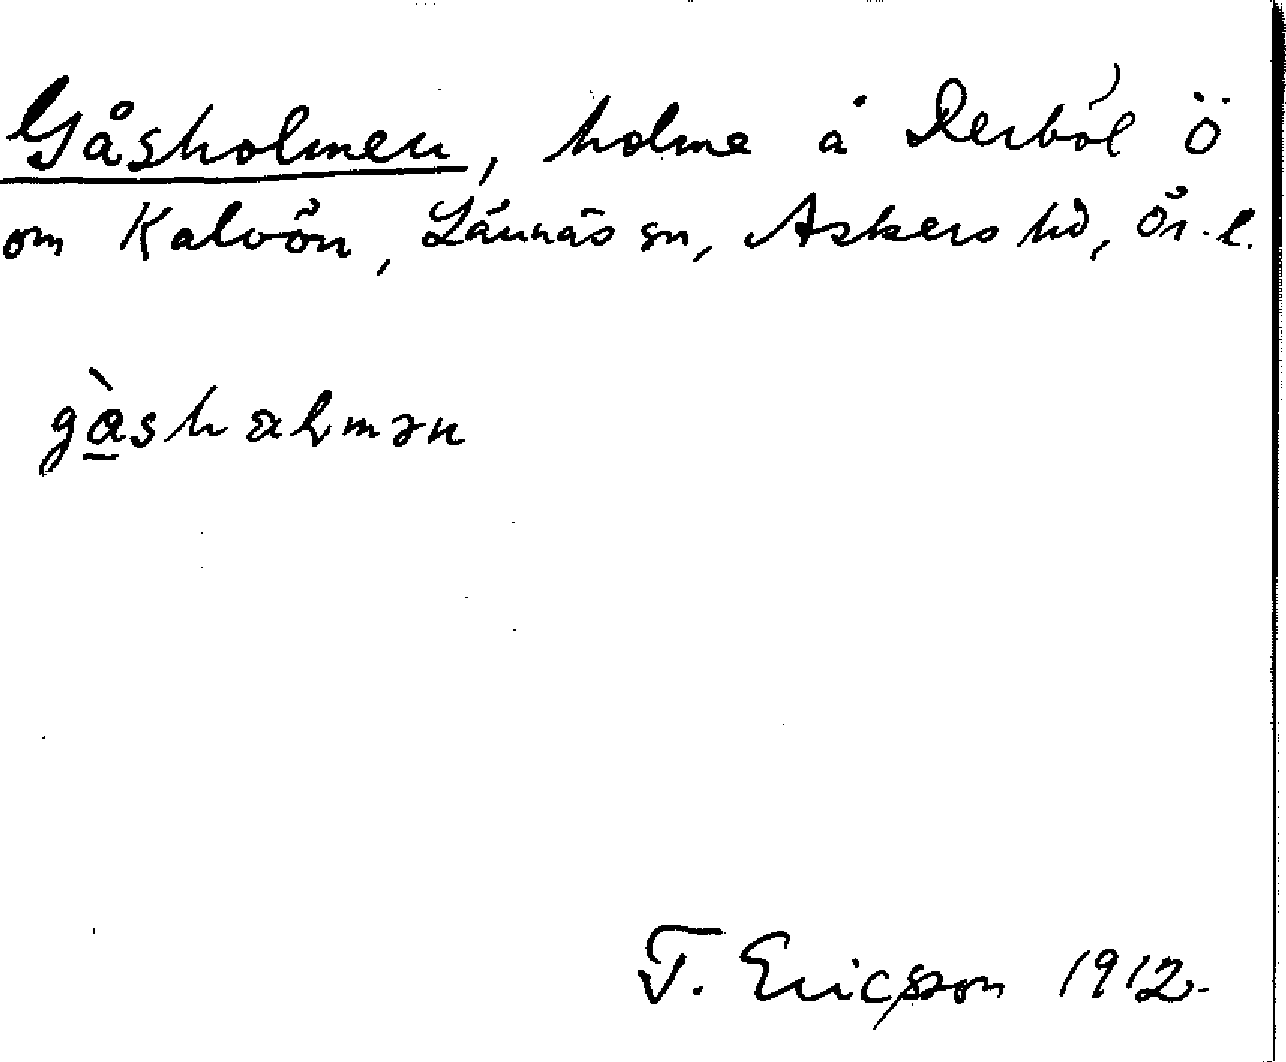 Gåsholmen, holme å Derból Ö
om Kalvön, Lännäs sn, Askers hd, Ör. l.
gàshalmən
T. Ericsson 1912.